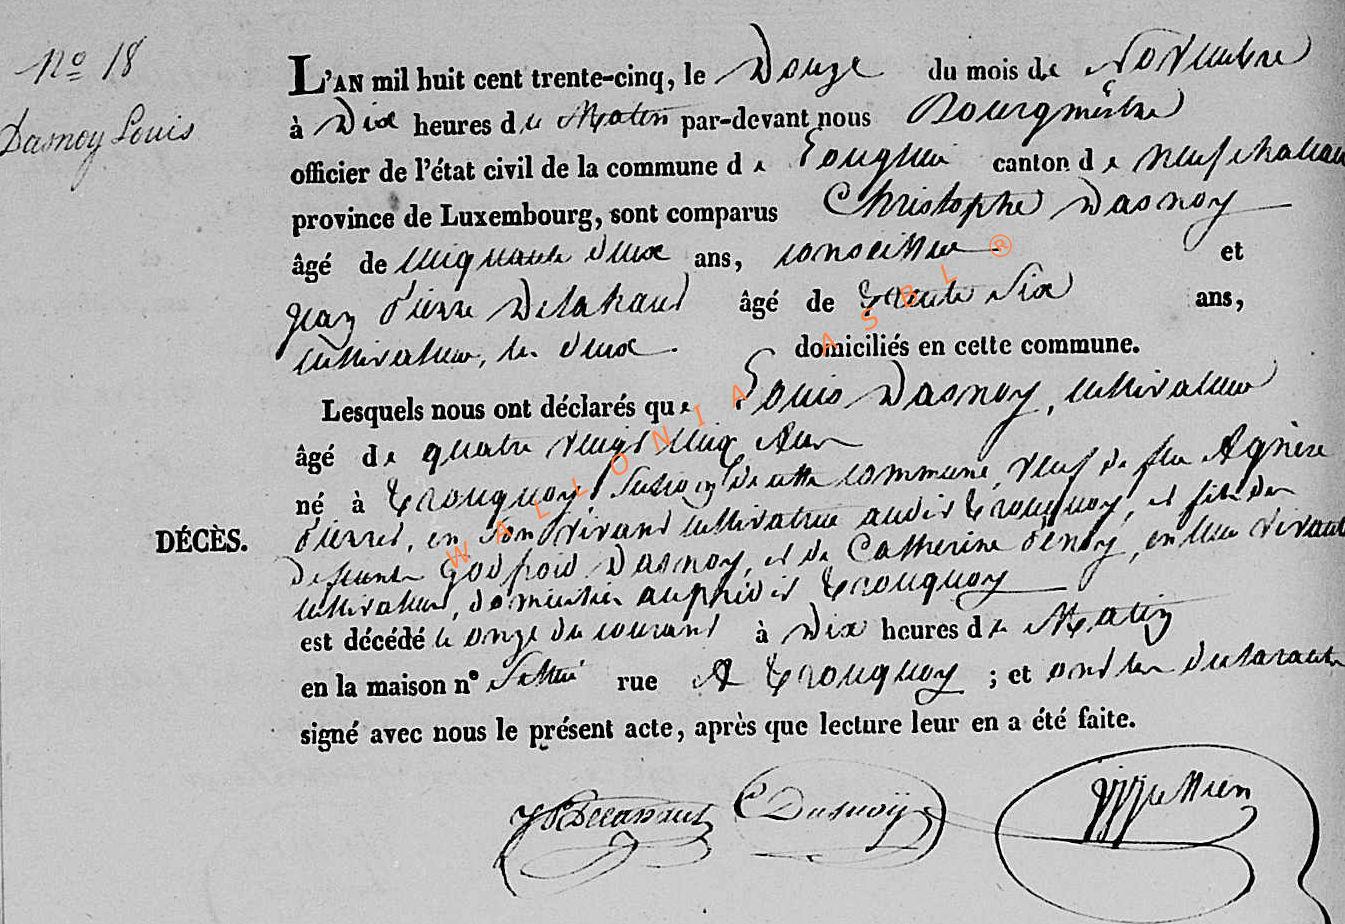 N° 18
Dasnoy Louis
L'AN mil huit cent trente-cinq, le Douze du mois de Novembre
à Dix heures du Matin par-devant nous Bourgmêstre
officier de l'état civil de la commune de Longlier canton de Neufchateau
province de Luxembourg, sont comparus Christophe Dasnoy
âgé de cinquante deux ans, conseiller et
Jean Pierre âgé de trente Six ans,
cultivateur, les deux domiciliés en cette commune.
Lesquels nous ont déclarés que Louis Dasnoy, cultivateur
âgé de quatre vingt cinq Ans
né à Tronquoy Section de cette commune, veuf de feu Agnèse
Pierret, en Son vivant cultivatrice audit Tronquoy, et fils des
defunts Godfroid Dasnoy, et de Catherine Penoy, en leur vivant
cultivateurs, domiciliés auprédit Tronquoy
DÉCÈS.
est décédé le onze du courant à Dix heures du Matin
en la maison n° Sept rue A Tronquoy ; et ont les declarants
signé avec nous le présent acte, après que lecture leur en a été faite.
C Dasnoÿ
WALLONIA ASBL ®